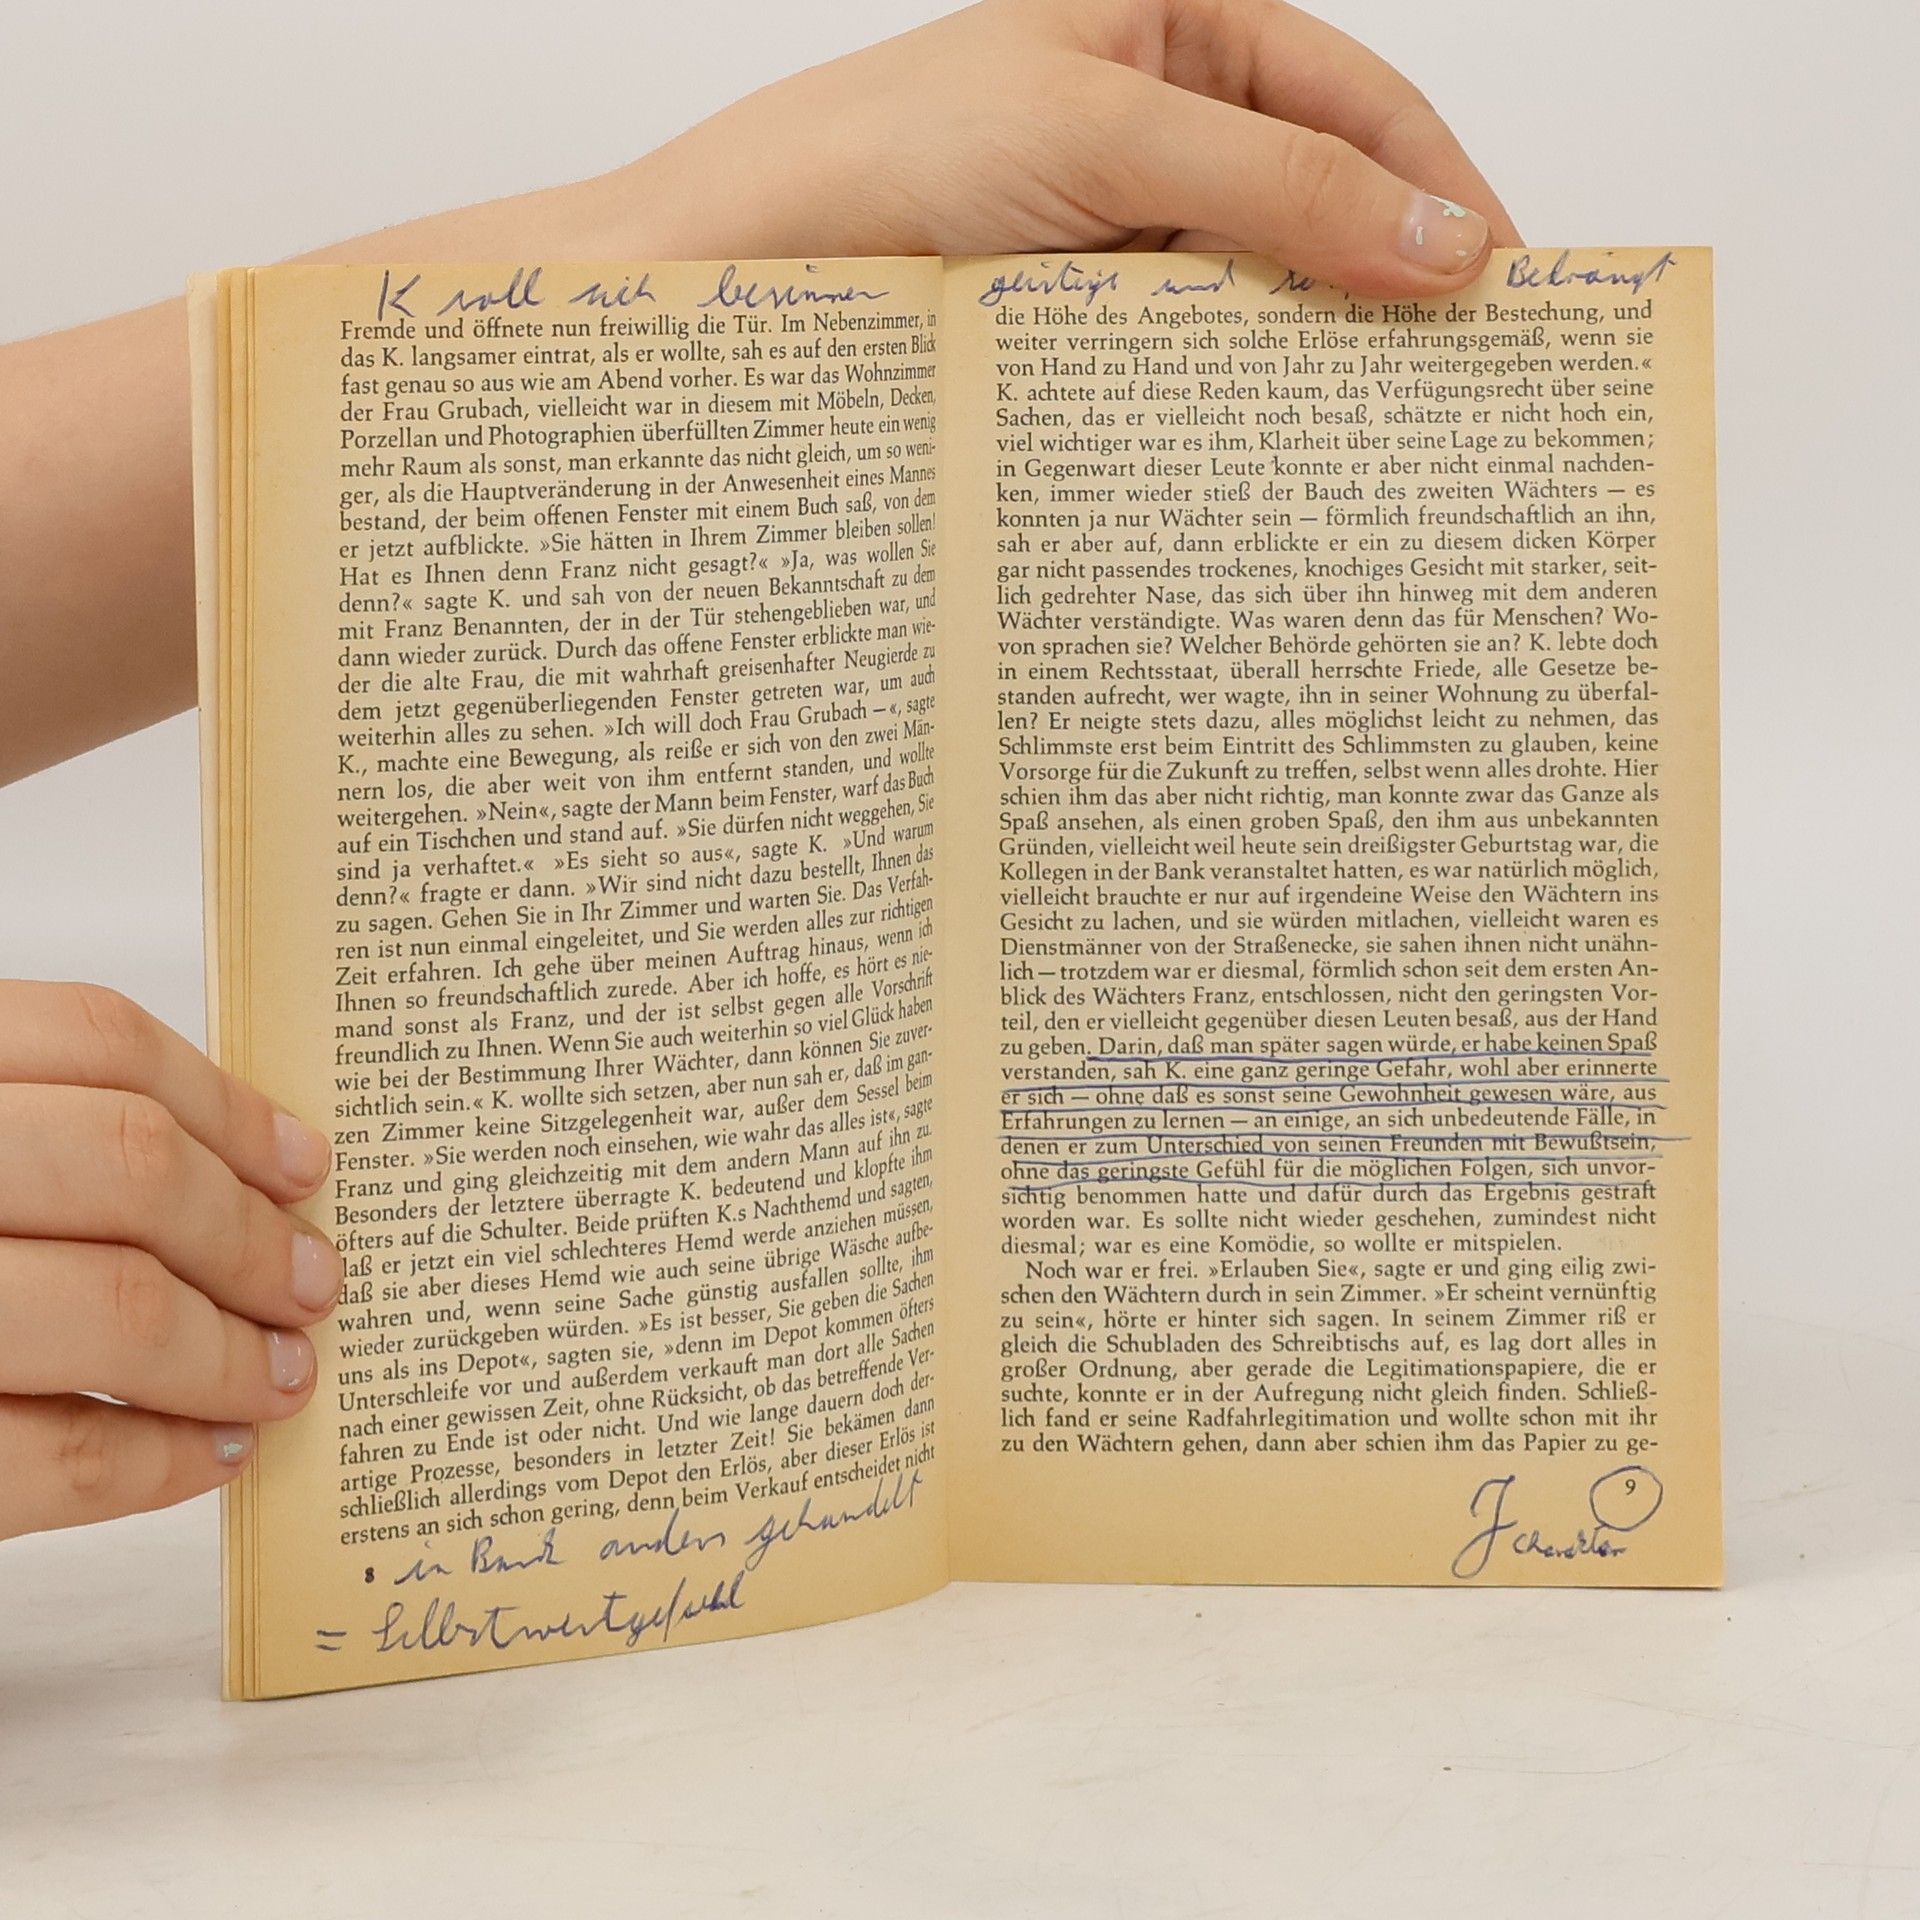 K soll sich besinnen
Fremde und öffnete nun freiwillig die Tür. Im Nebenzimmer, in
das K. langsamer eintrat, als er wollte, sah es auf den ersten Blick
fast genau so aus wie am Abend vorher. Es war das Wohnzimmer
der Frau Grubach, vielleicht war in diesem mit Möbeln, Decken,
Porzellan und Photographien überfüllten Zimmer heute ein wenig
mehr Raum als sonst, man erkannte das nicht gleich, um so weni-
ger, als die Hauptveränderung in der Anwesenheit eines Mannes
bestand, der beim offenen Fenster mit einem Buch saß, von dem
er jetzt aufblickte. »Sie hätten in Ihrem Zimmer bleiben sollen!
Hat es Ihnen denn Franz nicht gesagt?« »Ja, was wollen Sie
denn?« sagte K. und sah von der neuen Bekanntschaft zu dem
mit Franz Benannten, der in der Tür stehengeblieben war, und
dann wieder zurück. Durch das offene Fenster erblickte man wie-
der die alte Frau, die mit wahrhaft greisenhafter Neugierde zu
dem jetzt gegenüberliegenden Fenster getreten war, um auch
weiterhin alles zu sehen. »Ich will doch Frau Grubach —«, sagte
K., machte eine Bewegung, als reiße er sich von den zwei Män-
nern los, die aber weit von ihm entfernt standen, und wollte
weitergehen. »Nein«, sagte der Mann beim Fenster, warf das Buch
auf ein Tischchen und stand auf. »Sie dürfen nicht weggehen, Sie
sind ja verhaftet.« »Es sieht so aus«, sagte K. »Und warum
denn?« fragte er dann. »Wir sind nicht dazu bestellt, Ihnen das
zu sagen. Gehen Sie in Ihr Zimmer und warten Sie. Das Verfah-
ren ist nun einmal eingeleitet, und Sie werden alles zur richtigen
Zeit erfahren. Ich gehe über meinen Auftrag hinaus, wenn ich
Ihnen so freundschaftlich zurede. Aber ich hoffe, es hört es nie-
mand sonst als Franz, und der ist selbst gegen alle Vorschrift
freundlich zu Ihnen. Wenn Sie auch weiterhin so viel Glück haben
wie bei der Bestimmung Ihrer Wächter, dann können Sie zuver-
sichtlich sein.« K. wollte sich setzen, aber nun sah er, daß im gan-
zen Zimmer keine Sitzgelegenheit war, außer dem Sessel beim
Fenster. »Sie werden noch einsehen, wie wahr das alles ist«, sagte
Franz und ging gleichzeitig mit dem andern Mann auf ihn zu.
Besonders der letztere überragte K. bedeutend und klopfte ihm
öfters auf die Schulter. Beide prüften K.s Nachthemd und sagten,
daß er jetzt ein viel schlechteres Hemd werde anziehen müssen,
daß sie aber dieses Hemd wie auch seine übrige Wäsche aufbe-
wahren und, wenn seine Sache günstig ausfallen sollte, ihm
wieder zurückgeben würden. »Es ist besser, Sie geben die Sachen
uns als ins Depot«, sagten sie, »denn im Depot kommen öfters
Unterschleife vor und außerdem verkauft man dort alle Sachen
nach einer gewissen Zeit, ohne Rücksicht, ob das betreffende Ver-
fahren zu Ende ist oder nicht. Und wie lange dauern doch der-
artige Prozesse, besonders in letzter Zeit! Sie bekämen dann
schließlich allerdings vom Depot den Erlös, aber dieser Erlös ist
erstens an sich schon gering, denn beim Verkauf entscheidet nicht
8 in Bank anders gehandelt
= Selbstwertgefühl
geistige und Bedrängt
die Höhe des Angebotes, sondern die Höhe der Bestechung, und
weiter verringern sich solche Erlöse erfahrungsgemäß, wenn sie
von Hand zu Hand und von Jahr zu Jahr weitergegeben werden.«
K. achtete auf diese Reden kaum, das Verfügungsrecht über seine
Sachen, das er vielleicht noch besaß, schätzte er nicht hoch ein,
viel wichtiger war es ihm, Klarheit über seine Lage zu bekommen;
in Gegenwart dieser Leute konnte er aber nicht einmal nachden-
ken, immer wieder stieß der Bauch des zweiten Wächters — es
konnten ja nur Wächter sein — förmlich freundschaftlich an ihn,
sah er aber auf, dann erblickte er ein zu diesem dicken Körper
gar nicht passendes trockenes, knochiges Gesicht mit starker, seit-
lich gedrehter Nase, das sich über ihn hinweg mit dem anderen
Wächter verständigte. Was waren denn das für Menschen? Wo-
von sprachen sie? Welcher Behörde gehörten sie an? K. lebte doch
in einem Rechtsstaat, überall herrschte Friede, alle Gesetze be-
standen aufrecht, wer wagte, ihn in seiner Wohnung zu überfal-
len? Er neigte stets dazu, alles möglichst leicht zu nehmen, das
Schlimmste erst beim Eintritt des Schlimmsten zu glauben, keine
Vorsorge für die Zukunft zu treffen, selbst wenn alles drohte. Hier
schien ihm das aber nicht richtig, man konnte zwar das Ganze als
Spaß ansehen, als einen groben Spaß, den ihm aus unbekannten
Gründen, vielleicht weil heute sein dreißigster Geburtstag war, die
Kollegen in der Bank veranstaltet hatten, es war natürlich möglich,
vielleicht brauchte er nur auf irgendeine Weise den Wächtern ins
Gesicht zu lachen, und sie würden mitlachen, vielleicht waren es
Dienstmänner von der Straßenecke, sie sahen ihnen nicht unähn-
lich — trotzdem war er diesmal, förmlich schon seit dem ersten An-
blick des Wächters Franz, entschlossen, nicht den geringsten Vor-
teil, den er vielleicht gegenüber diesen Leuten besaß, aus der Hand
zu geben. Darin, daß man später sagen würde, er habe keinen Spaß
verstanden, sah K. eine ganz geringe Gefahr, wohl aber erinnerte
er sich — ohne daß es sonst seine Gewohnheit gewesen wäre, aus
Erfahrungen zu lernen — an einige, an sich unbedeutende Fälle, in
denen er zum Unterschied von seinen Freunden mit Bewußtsein,
ohne das geringste Gefühl für die möglichen Folgen, sich unvor-
sichtig benommen hatte und dafür durch das Ergebnis gestraft
worden war. Es sollte nicht wieder geschehen, zumindest nicht
diesmal; war es eine Komödie, so wollte er mitspielen.
Noch war er frei. »Erlauben Sie«, sagte er und ging eilig zwi-
schen den Wächtern durch in sein Zimmer. »Er scheint vernünftig
zu sein«, hörte er hinter sich sagen. In seinem Zimmer riß er
gleich die Schubladen des Schreibtischs auf, es lag dort alles in
großer Ordnung, aber gerade die Legitimationspapiere, die er
suchte, konnte er in der Aufregung nicht gleich finden. Schließ-
lich fand er seine Radfahrlegitimation und wollte schon mit ihr
zu den Wächtern gehen, dann aber schien ihm das Papier zu ge-
9
J Charakter